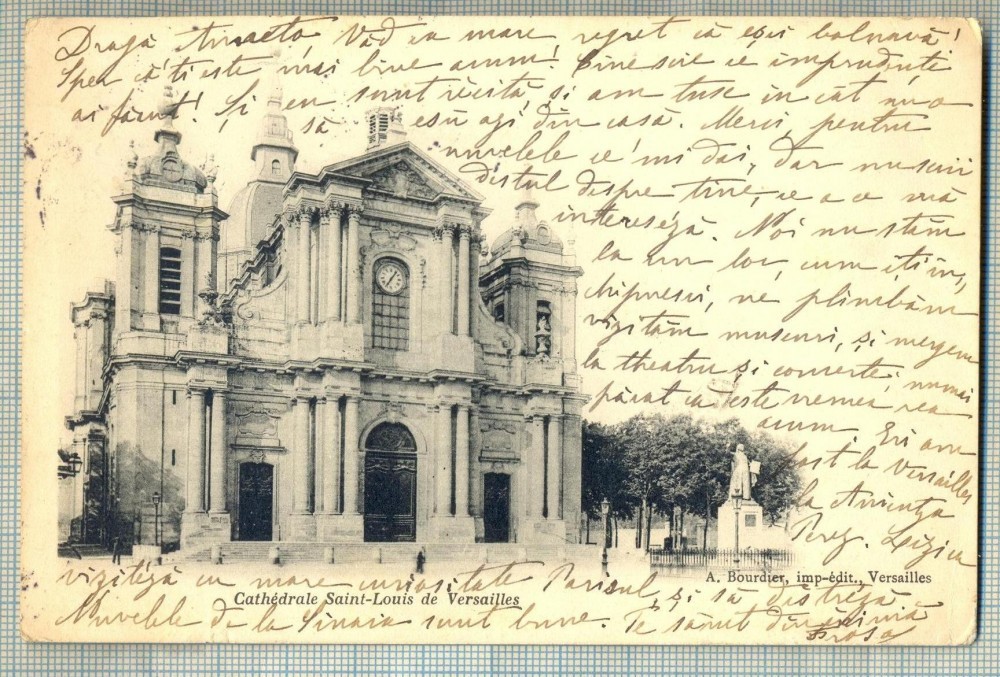 Dragă Anneto, Văd cu mare regret că ești bolnavă!
Sper că ți este mai bine acum! Cine știe ce imprudențe
ai făcut! Și eu sunt răcită, și am tuse în cât nu o
să esu aci din casă. Merci, pentru
nuvelele ce 'mi dai, Dar nu sunt
destul despre tine, ce a ce mă
intereséză. Noi nu stăm
la un loc, cum știm,
chipurescu, ne plimbăm
vizităm museuri, și mergem
la theatru și concerte, numai
păcat că este vremea rea
acum. Eri am
fost la Versailles
la Aminția
Perez. Lizica
vizitéză cu mare curiositate Parisul, și să distréză
Nuvelele de la Sinaia sunt bune. Te sărut din inimă
Rosa
Cathédrale Saint-Louis de Versailles
A. Bourdier, imp-édit., Versailles